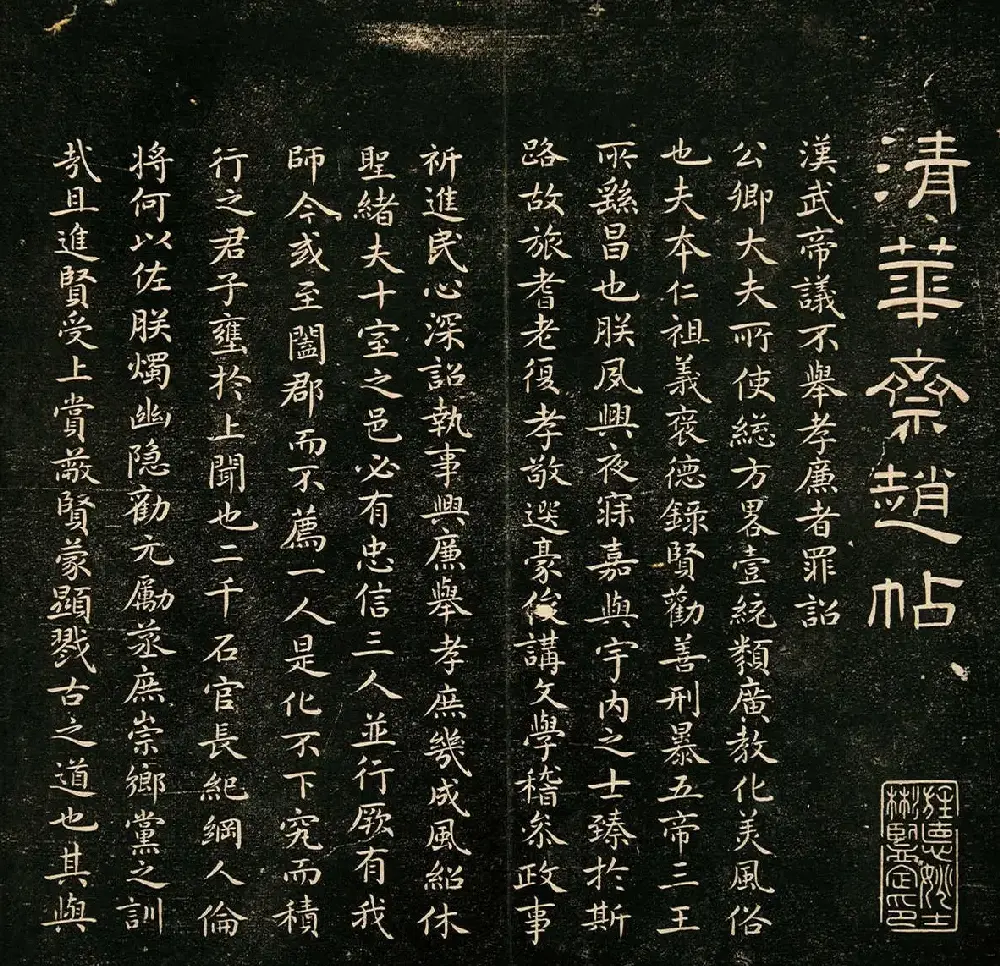 清華齋趙帖
漢武帝議不舉孝廉者罪詔
公卿大夫所使總方畧壹統類廣教化美風俗
也夫本仁祖義褒德錄賢勸善刑暴五帝三王
所繇昌也朕夙興夜寐嘉與宇内之士臻於斯
路故旅耆老復孝敬選豪俊講文學稽叅政事
祈進民心深詔執事興廉舉孝庶幾成風紹休
聖緒夫十室之邑必有忠信三人並行厥有我
師今或至闔郡而不薦一人是化不下究而積
行之君子壅於上聞也二千石官長紀綱人倫
將何以佐朕燭幽隐勸元厲蒸庶崇鄉黨之訓
㢤且進賢受上賞蔽賢蒙顯戮古之道也其與